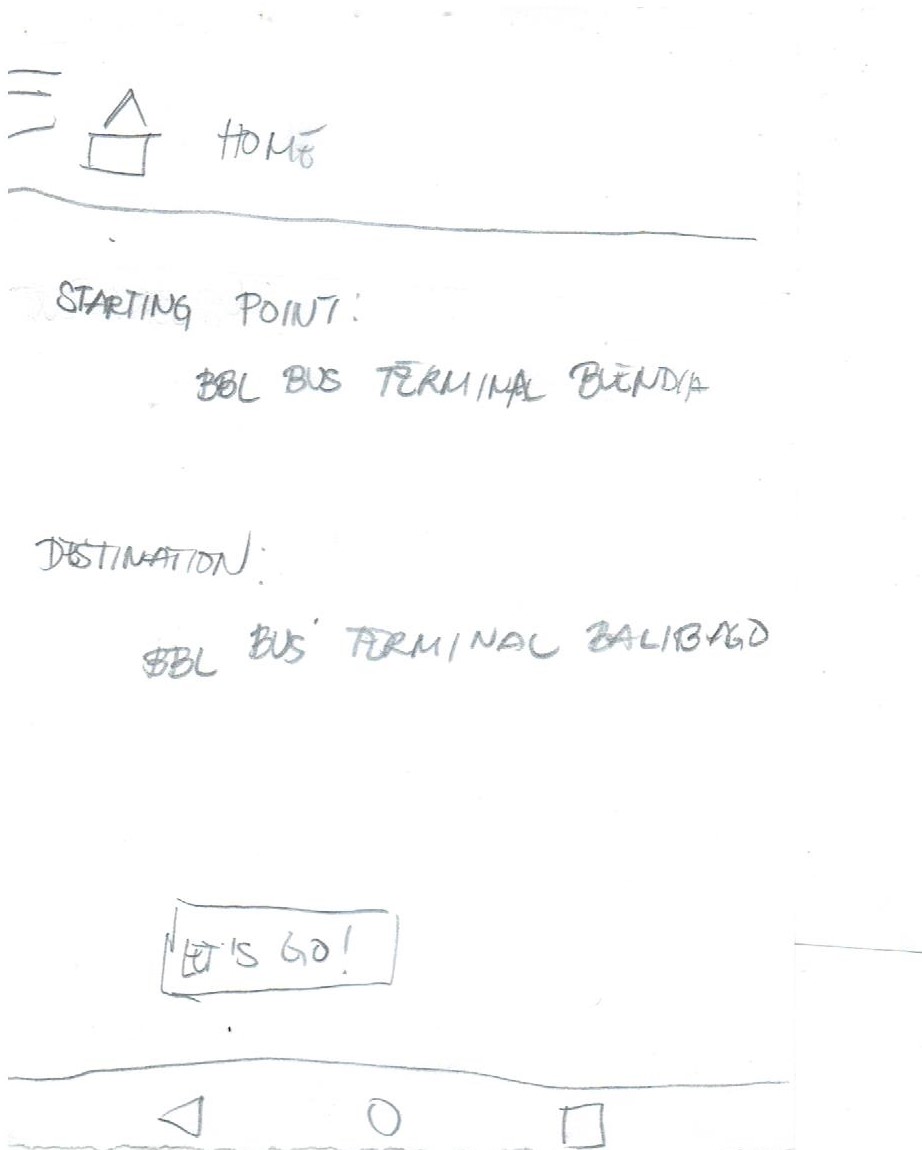 HOME
STARTING POINT:
BBL BUS TERMINAL BUENDIA
DESTINATION:
BBL BUS TERMINAL BALIBAGO
LET'S GO!